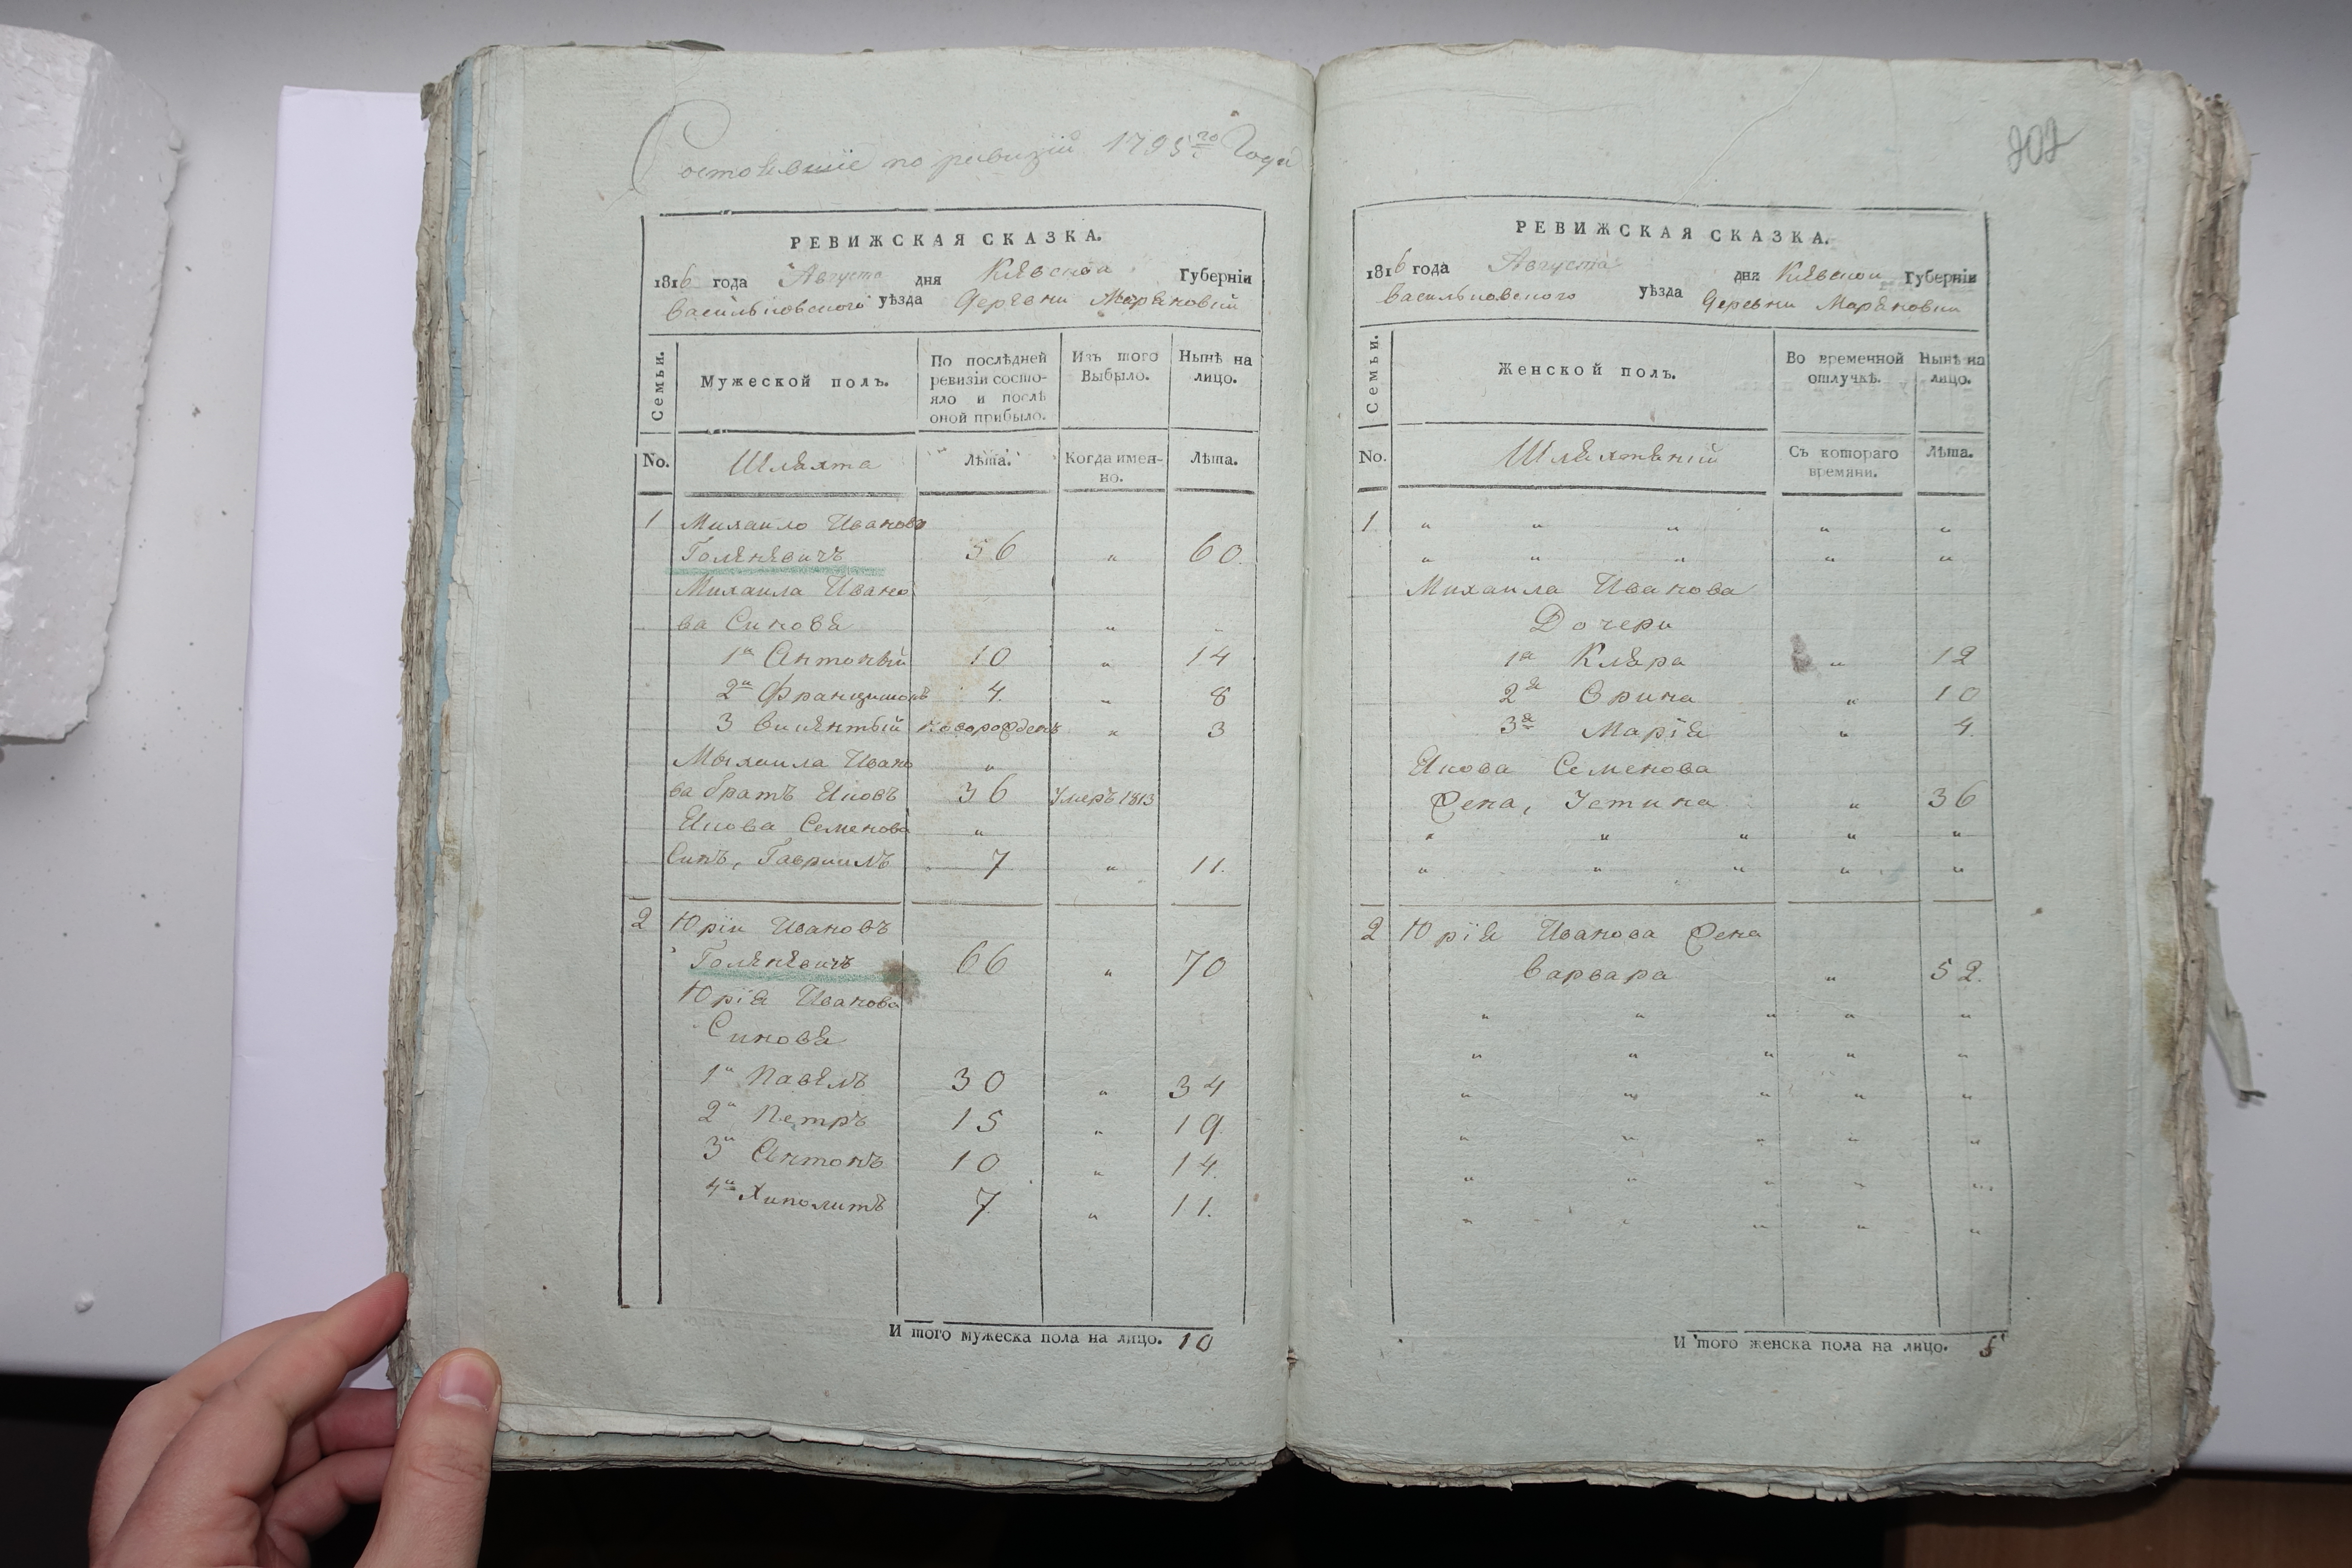 Состоявшіе по ревизіи 1795го Года
РЕВИЖСКАЯ СКАЗКА.
1816 года Августа дня Кіевской Губерніи
Васильковского уѣзда Деревни Маряновки
Семьи.
Мужеской полъ.
По послѣдней ревизіи состояло и послѣ оной прибыло.
Изъ того Выбыло.
Нынѣ на лицо.
No. Шляхта Лѣта. Когда именно. Лѣта.
1 Михаило Иванова
Голяневичъ 56 „ 60.
Михаила Ивано
ва Синовя „ „
1й Антоный 10 „ 14
2й Францишокъ 4. „ 8
3 Викентый новорожденъ „ 3
Михаила Ивано „
ва братъ Яковъ 36 умеръ 1813
Якова Семенова „
Синъ, Гавриилъ 7 „ 11.
2 Юрiи Ивановъ
Голяневичъ 66 „ 70
Юрія Иванова
Синовя
1й Павелъ 30 „ 34
2й Петръ 15 „ 19.
3й Антонъ 10 „ 14.
4й Хиполитъ 7 „ 11.
И того мужеска пола на лицо. 10
202
РЕВИЖСКАЯ СКАЗКА.
1816 года Августа дня Кіевской Губерніи
Васильковского уѣзда Деревни Маряновки
Семьи.
Женской полъ.
Во временной отлучкѣ.
Нынѣ на лицо.
No. Съ котораго времяни. Лѣта.
1 „ „ „ „ „
„ „ „ „ „
Михаила Иванова
Дочери
1я Кляра „ 12
2я Орина „ 10
3я Марія „ 4.
Якова Семенова
Жена, Устина „ 36
„ „ „ „ „
„ „ „ „ „
2 Юрія Иванова Жена
Варвара „ 52.
„ „ „ „ „
„ „ „ „ „
„ „ „ „ „
„ „ „ „ „
„ „ „ „ „
„ „ „ „ „
И того женска пола на лицо. 5